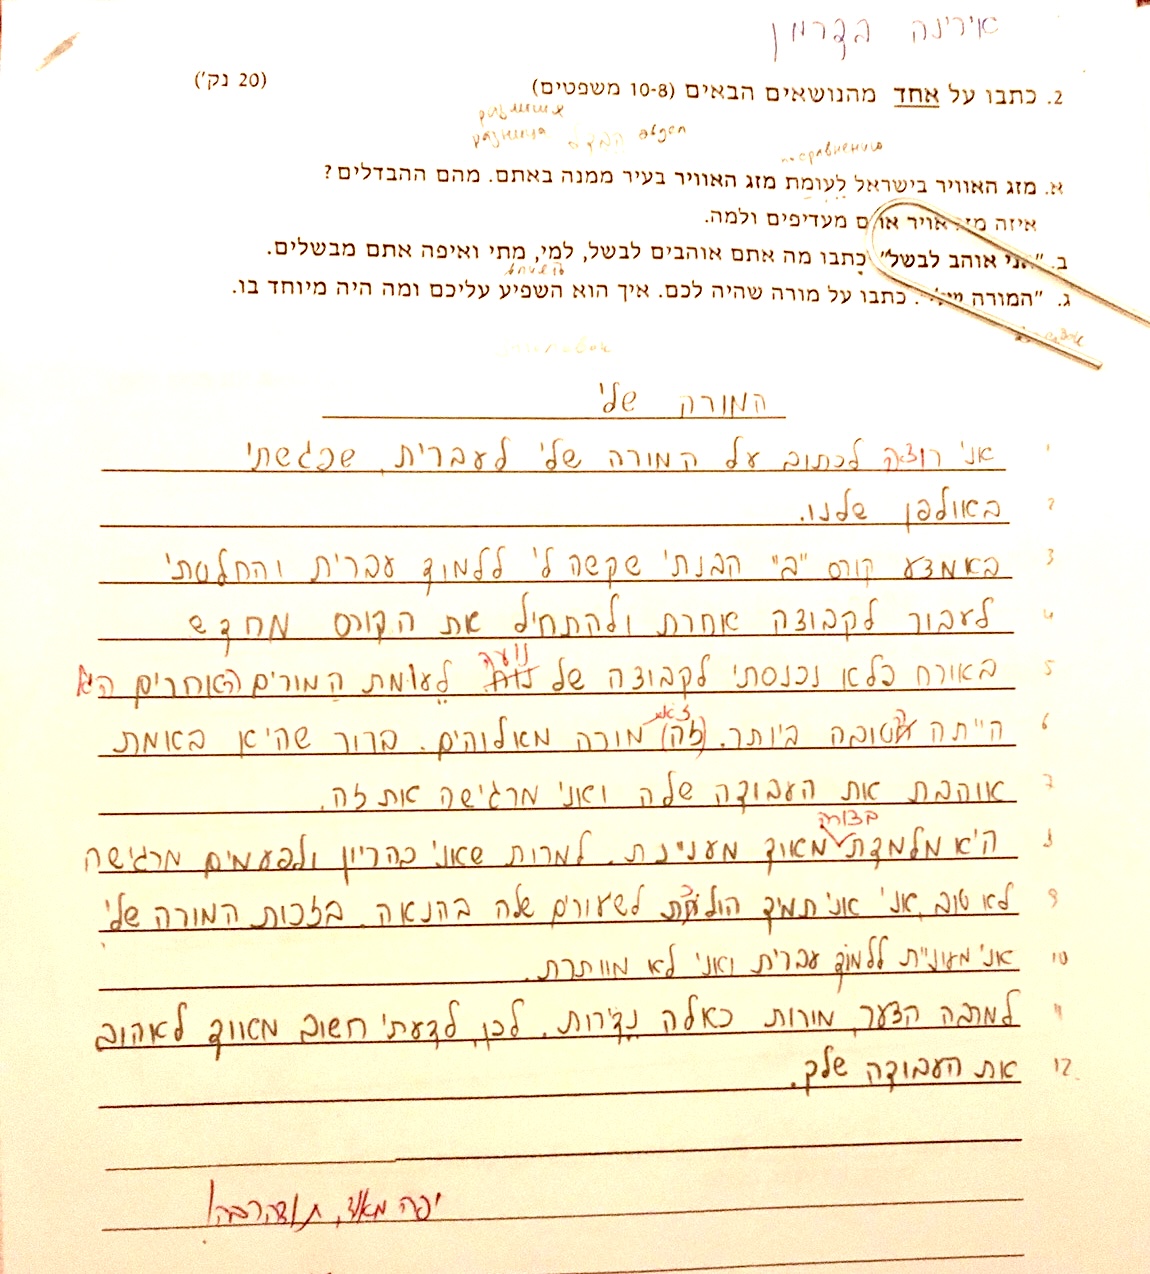 אירינה בקרמן
2. כתבו על אחד מהנושאים הבאים (8-10 משפטים) (20 נק')
הבדל
א. מזג האוויר בישראל לעומת מזג האוויר בעיר ממנה באתם. מהם ההבדלים?
איזה מזג אויר אתם מעדיפים ולמה.
ב. "אני אוהב לבשל" כתבו מה אתם אוהבים לבשל, למי, מתי ואיפה אתם מבשלים.
ג. "המורה שלי". כתבו על מורה שהיה לכם. איך הוא השפיע עליכם ומה היה מיוחד בו.
המורה שלי
1 אני רוצה לכתוב על המורה שלי לעברית, שפגשתי
2 באולפן שלנו.
3 באמצע קורס "ב" הבנתי שקשה לי ללמוד עברית והחלטתי
4 לעבור לקבוצה אחרת ולהתחיל את הקורס מחדש
נועה
5 באורח פלא נכנסתי לקבוצה של לעומת המורים האחרים היא
זאת
6 הייתה הטובה ביותר. (זה) מורה מאלוהים. ברור שהיא באמת
7 אוהבת את העבודה שלה ואני מרגישה את זה.
בצורה
8 היא מלמדת מאוד מעניינת. למרות שאני בהריון ולפעמים מרגישה
9 לא טוב, אני אני תמיד הולכת לשעורים שלה בהנאה. בזכות המורה שלי
10 אני מעוניית ללמוד עברית ואני לא מוותרת.
11 למרבה הצער, מורות כאלה נדירות. לכן, לדעתי חשוב מאווד לאהוב
12 את העבודה שלך.
יפה מאוד, תודה רבה!